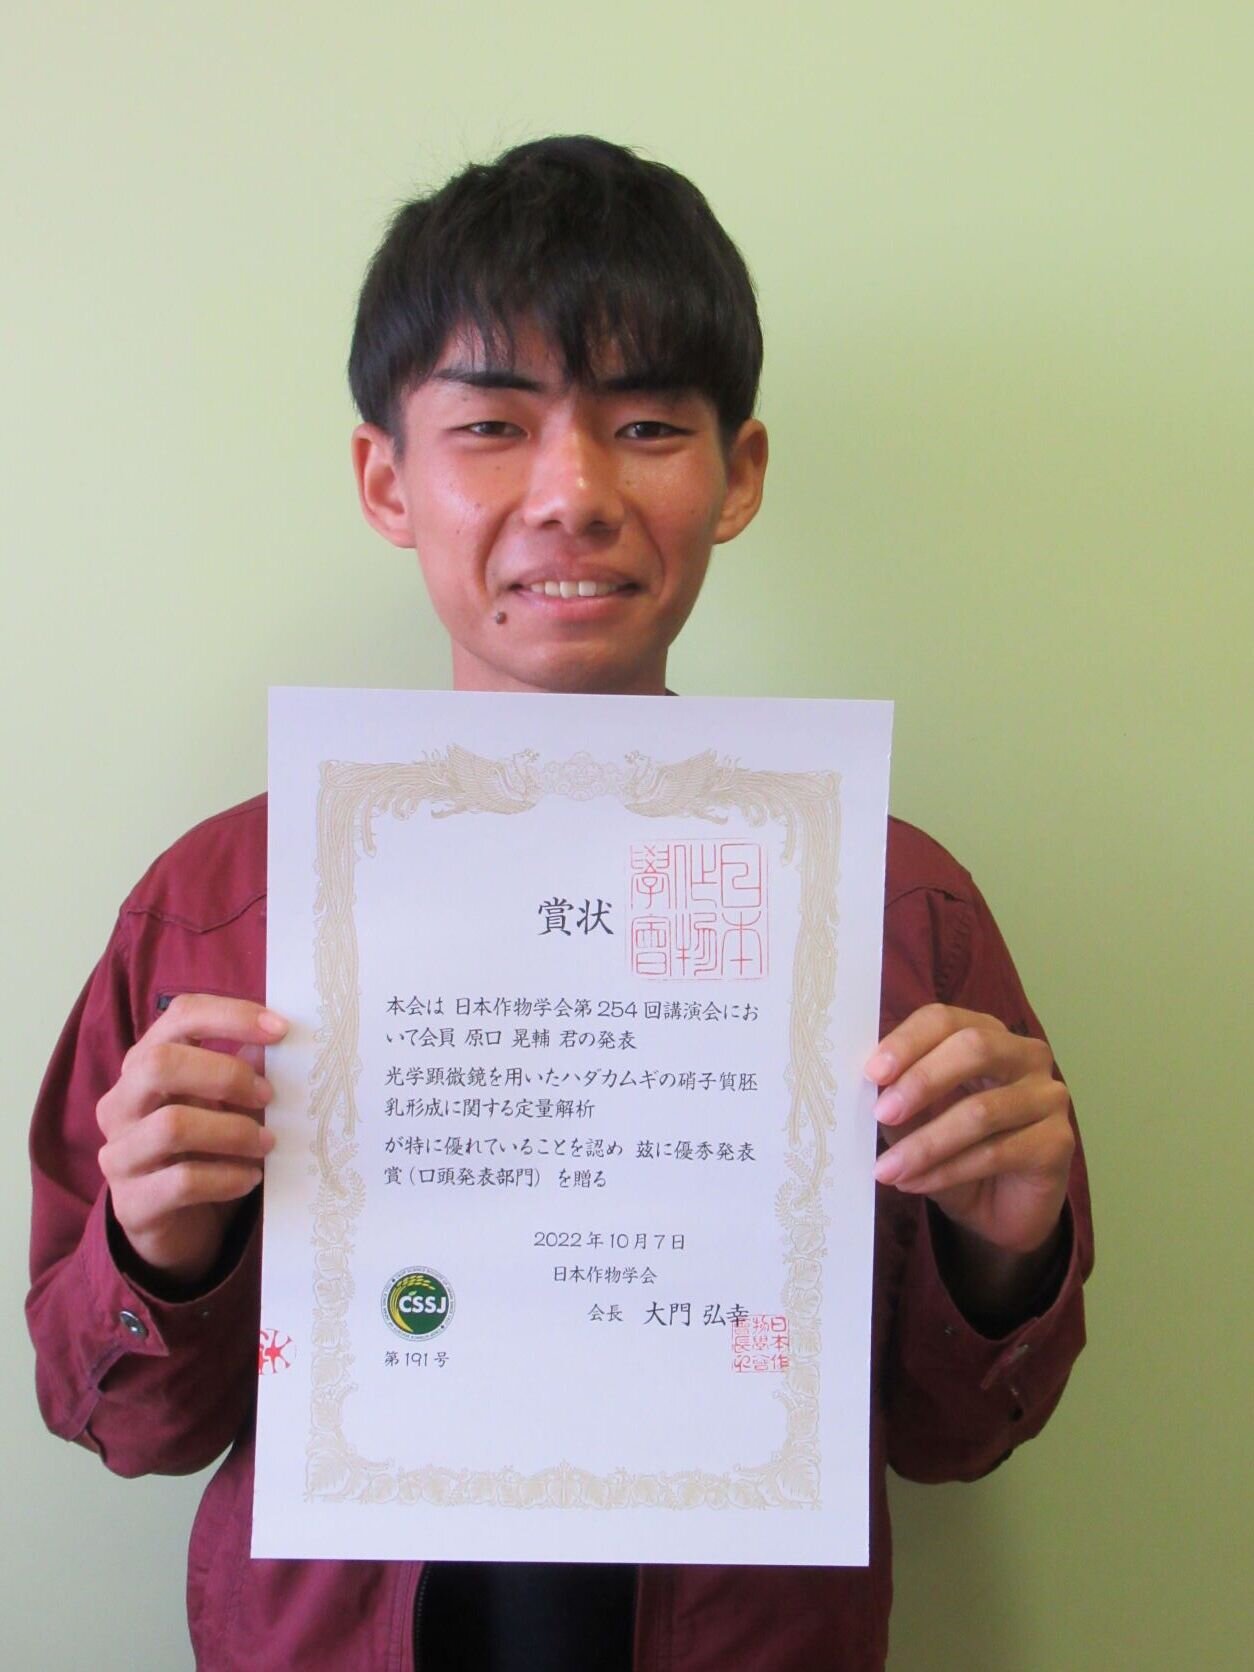 賞状
日本
作物
學會
本会は 日本作物学会第254回講演会にお
いて会員 原口 晃輔 君の発表
光学顕微鏡を用いたハダカムギの硝子質胚
乳形成に関する定量解析
が特に優れていることを認め 茲に優秀発表
賞(口頭発表部門) を贈る
2022年10月7日
日本作物学会
会長 大門 弘幸
CSSJ
第191号